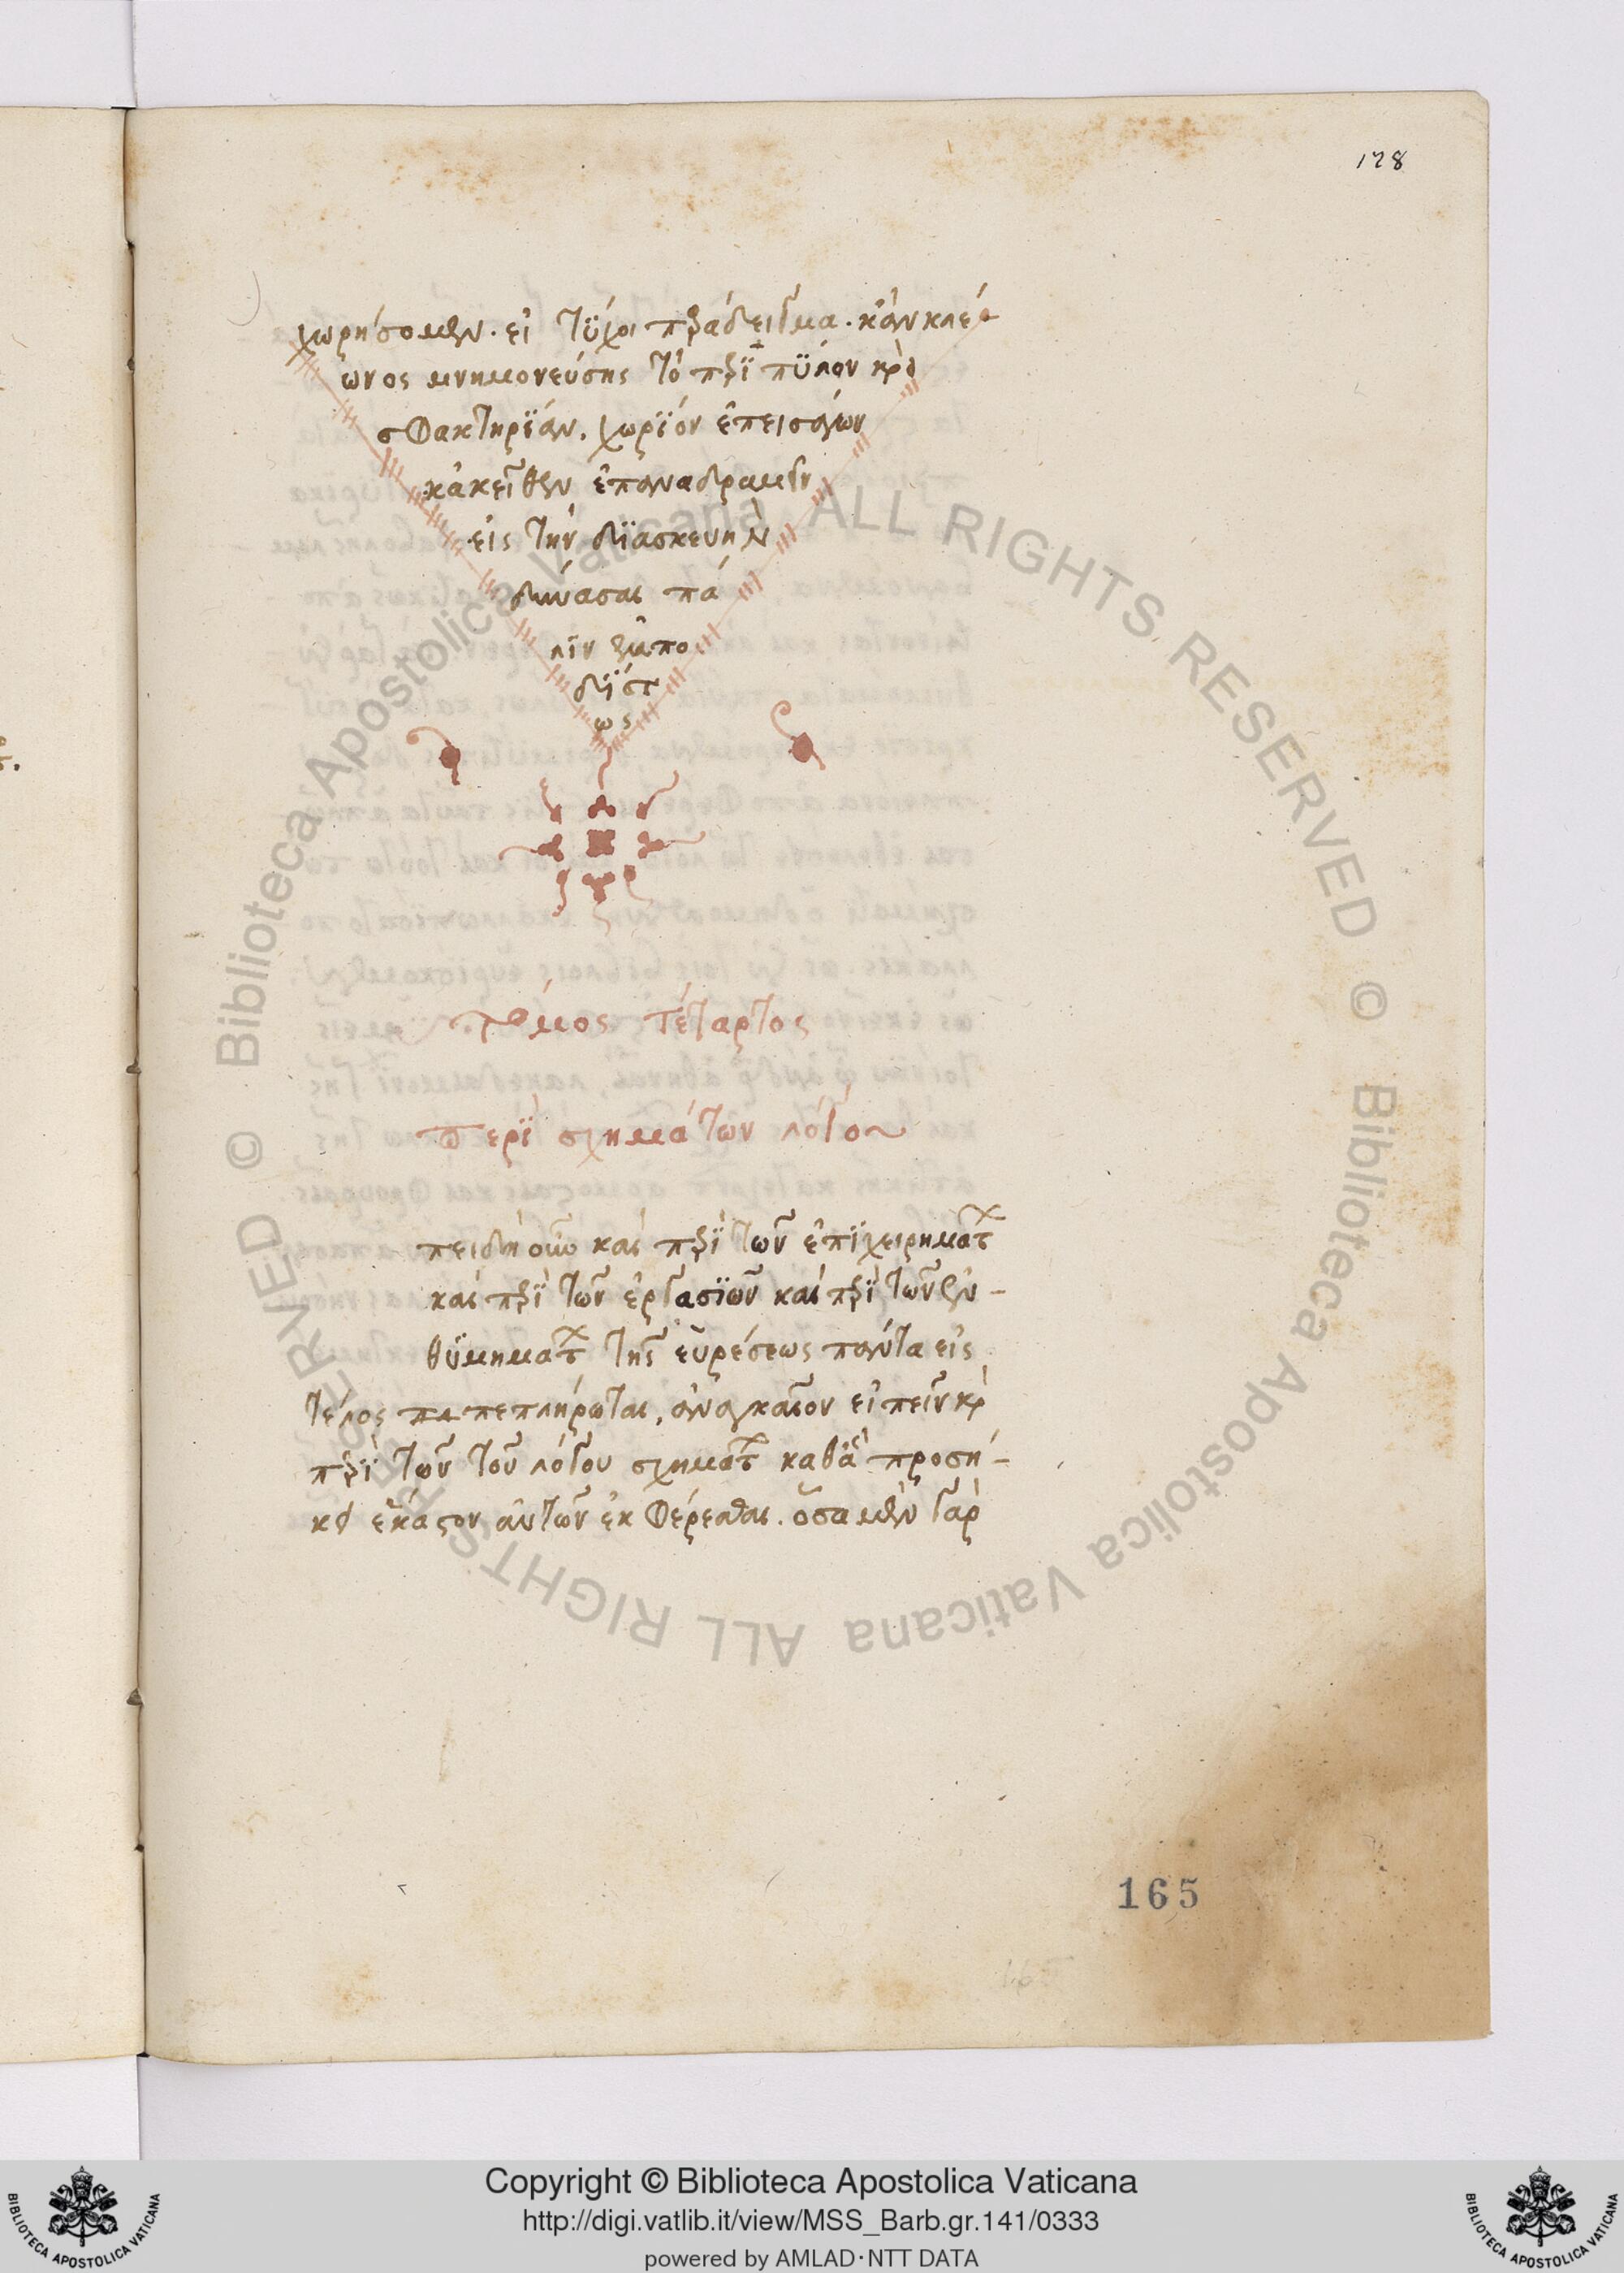 178
χωρήσομεν. εἰ τύχοι παράδειγμα. κἂν κλέ-
ωνος μνημονεύσης τὸ περὶ πύλον καὶ
σφακτηρίαν, χωρίον ἐπεισάγων
κἀκεῖθεν ἐπαναδραμεῖν
εἰς τὴν διασκευὴν
δύνασαι πά
λιν ἐμπο
δίστ
ως
Τόμος τέταρτος
Περὶ σχημάτων λόγου
πειδὴ οὖν καὶ περὶ τῶν ἐπιχειρημάτ
καὶ περὶ τῶν ἐργασιῶν καὶ περὶ τῶν ἐν-
θυμημάτ τῆς εὑρέσεως πάντα εἰς
τέλος πεπλήρωται, ἀναγκαῖον εἰπεῖν καὶ
περὶ τῶν τοῦ λόγου σχημάτ καθὰ προσή-
κει ἕκαστον αὐτῶν ἐκφέρεσθαι. ὅσα μὲν γὰρ
165
© Biblioteca Apostolica Vaticana ALL RIGHTS RESERVED © Biblioteca Apostolica Vaticana ALL RIGHTS RESERVED
Copyright © Biblioteca Apostolica Vaticana
http://digi.vatlib.it/view/MSS_Barb.gr.141/0333
powered by AMLAD·NTT DATA
BIBLIOTECA APOSTOLICA VATICANA
BIBLIOTECA APOSTOLICA VATICANA